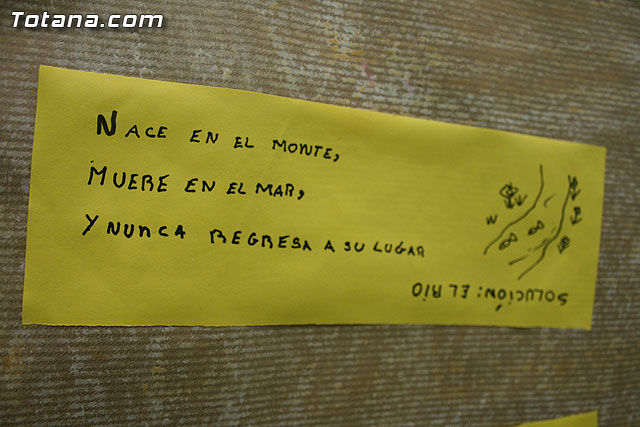 Totana.com
NACE EN EL MONTE,
MUERE EN EL MAR,
Y NUNCA REGRESA A SU LUGAR
SOLUCIÓN: EL RÍO